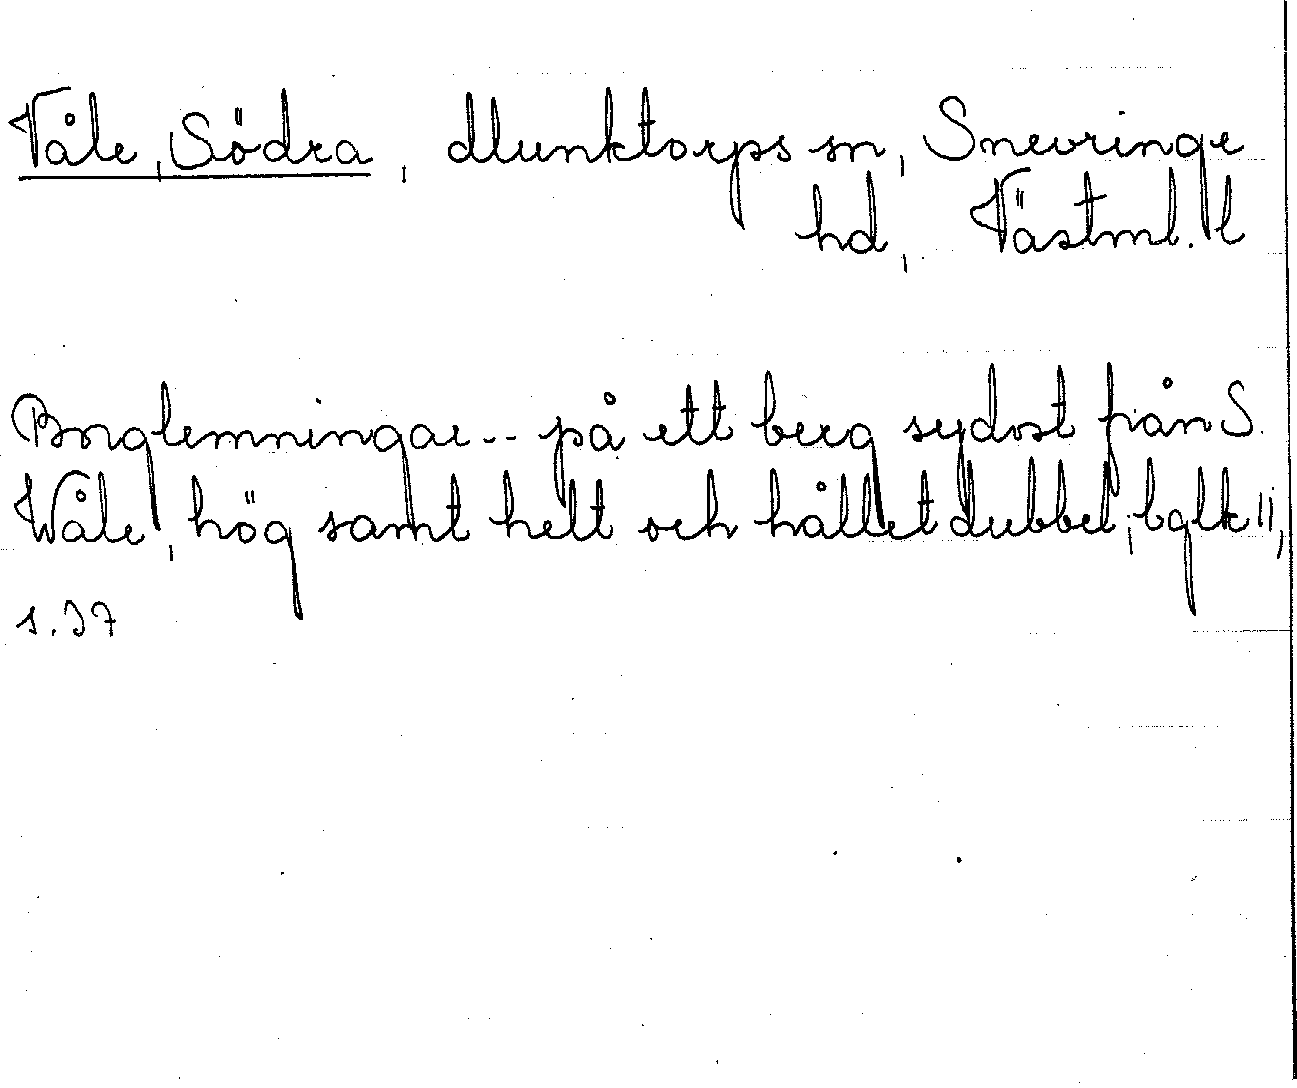 Våle, Södra, Munktorps sn, Snevringe
hd, Västml. l
Borglemningar -- på ett berg sydost från S.
Wåle, hög samt helt och hållet dubbel; bglk II,
s. 37